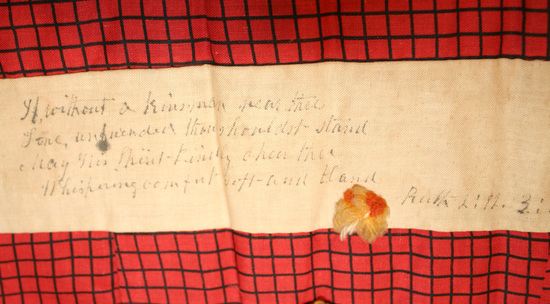 If without a kinsman near thee
Lone, unfriended thou shouldst stand
May His Spirit kindly cheer thee
Whispering comfort soft and bland
Ruth 2:11. 3: